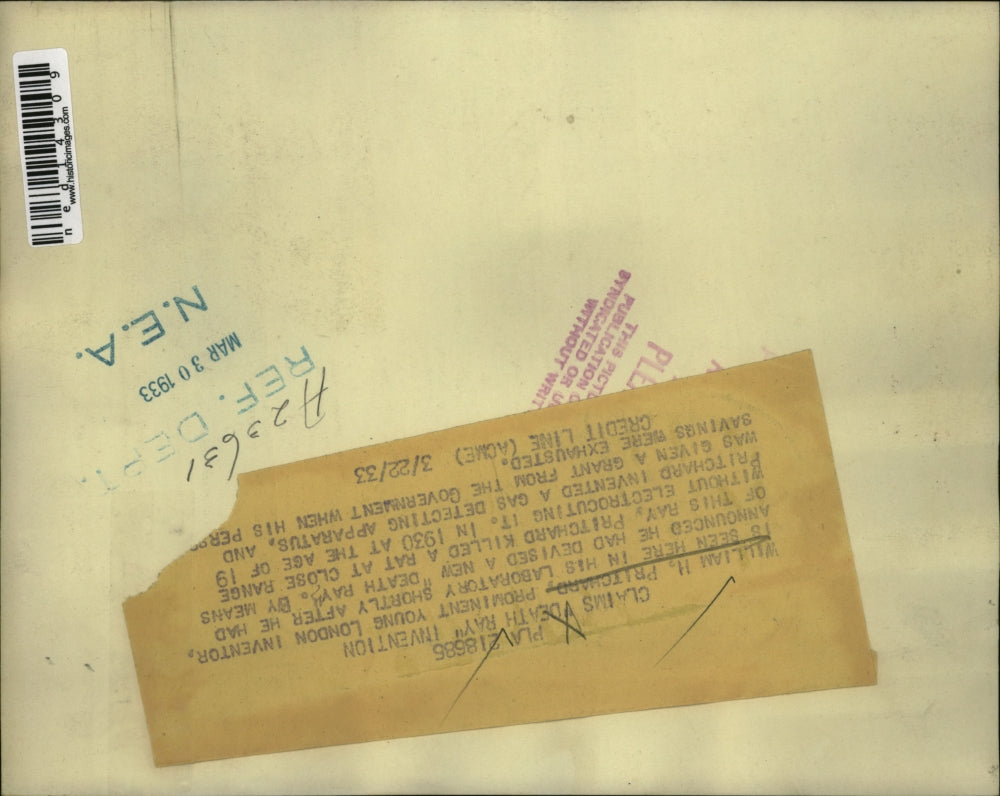 PLA 218685
CLAIMS "DEATH RAY" INVENTION
WILLIAM H. PRITCHARD, PROMINENT YOUNG LONDON INVENTOR,
IS SEEN HERE IN HIS LABORATORY SHORTLY AFTER HE HAD
ANNOUNCED HE HAD DEVISED A NEW "DEATH RAY". BY MEANS
OF THIS RAY, PRITCHARD KILLED A RAT AT CLOSE RANGE
WITHOUT ELECTROCUTING IT. IN 1930 AT THE AGE OF 19
PRITCHARD INVENTED A GAS DETECTING APPARATUS, AND
WAS GIVEN A GRANT FROM THE GOVERNMENT WHEN HIS PERSO
SAVINGS WERE EXHAUSTED.
CREDIT LINE (ACME) 3/22/33
A23631
REF. DEPT.
MAR 30 1933
N.E.A.
PLE
THIS PICTU
PUBLICATION O
SYNDICATED OR U
WITHOUT WRIT
ned14309
www.historicimages.com